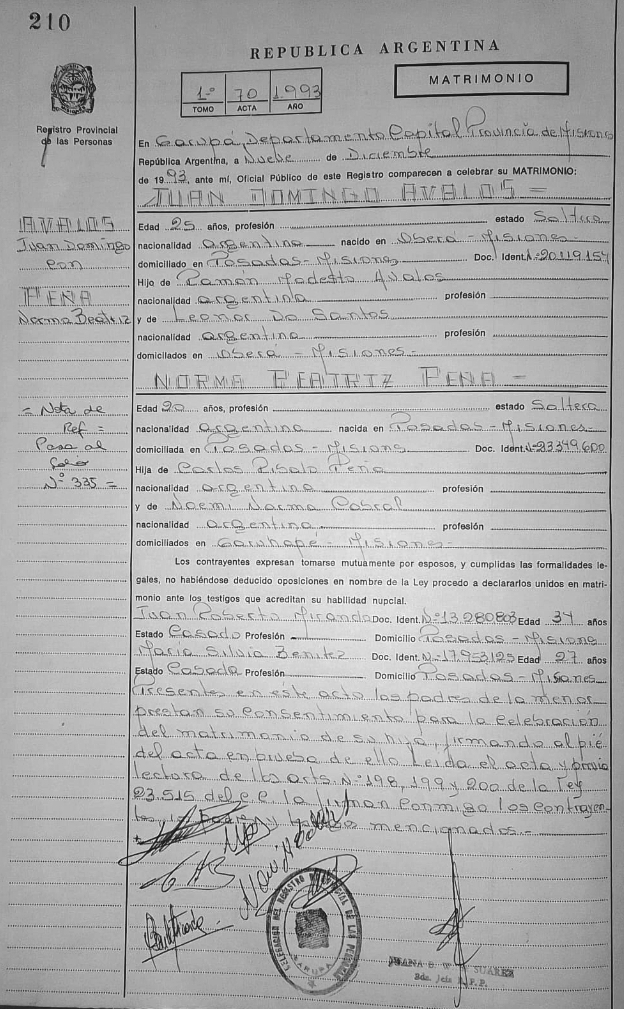 210
REPUBLICA ARGENTINA
1º 70 1.993
TOMO ACTA AÑO
MATRIMONIO
Registro Provincial
de las Personas
En Garupá, Departamento Capital Provincia de Misiones
República Argentina, a Nueve de Diciembre
de 1993, ante mí, Oficial Público de este Registro comparecen a celebrar su MATRIMONIO:
JUAN DOMINGO AVALOS =
AVALOS
Juan Domingo
con
PENA
Norma Beatriz
Edad 25 años, profesión estado Soltero
nacionalidad argentina nacido en Oberá - Misiones
domiciliado en Posadas - Misiones Doc. Ident. Nº 20.119.154
Hijo de Ramón Modesto Avalos
nacionalidad argentina profesión
y de Leonor Do Santos
nacionalidad argentina profesión
domiciliados en Oberá - Misiones -
NORMA BEATRIZ PENA =
= Nota de
Ref =
Pasa al
folio
Nº 335 =
Edad 20 años, profesión estado Soltera
nacionalidad argentina nacida en Posadas - Misiones -
domiciliada en Posadas - Misions Doc. Ident. Nº 23.349.600
Hija de Carlos Pena
nacionalidad argentina profesión
y de Noemi Norma Cabral
nacionalidad argentina profesión
domiciliados en Garuhapé - Misiones -
Los contrayentes expresan tomarse mutuamente por esposos, y cumplidas las formalidades le-
gales, no habiéndose deducido oposiciones en nombre de la Ley procedo a declararlos unidos en matri-
monio ante los testigos que acreditan su habilidad nupcial.
Juan Roberto Miranda Doc. Ident. Nº 13.280.803 Edad 34 años
Estado Casado Profesión Domicilio Posadas - Misions
María Silvia Benitez Doc. Ident. Nº 17.953.125 Edad 27 años
Estado Casada Profesión Domicilio Posadas - Misiones
Presentes en este acto los padres de la menor
prestan su consentimiento para la celebracion
del matrimonio de su hija, firmando al pié
del acta en prueba de ello Leida el acta y previa
lectura de los arts. Nº 198, 199 y 200 de la Ley
23.515 del C.C. la firman conmigo los contrayen-
tes, padres y mencionados. -
DELEGACION DEL REGISTRO PROVINCIAL DE LAS PERSONAS
GARUPA
JUANA SUAREZ